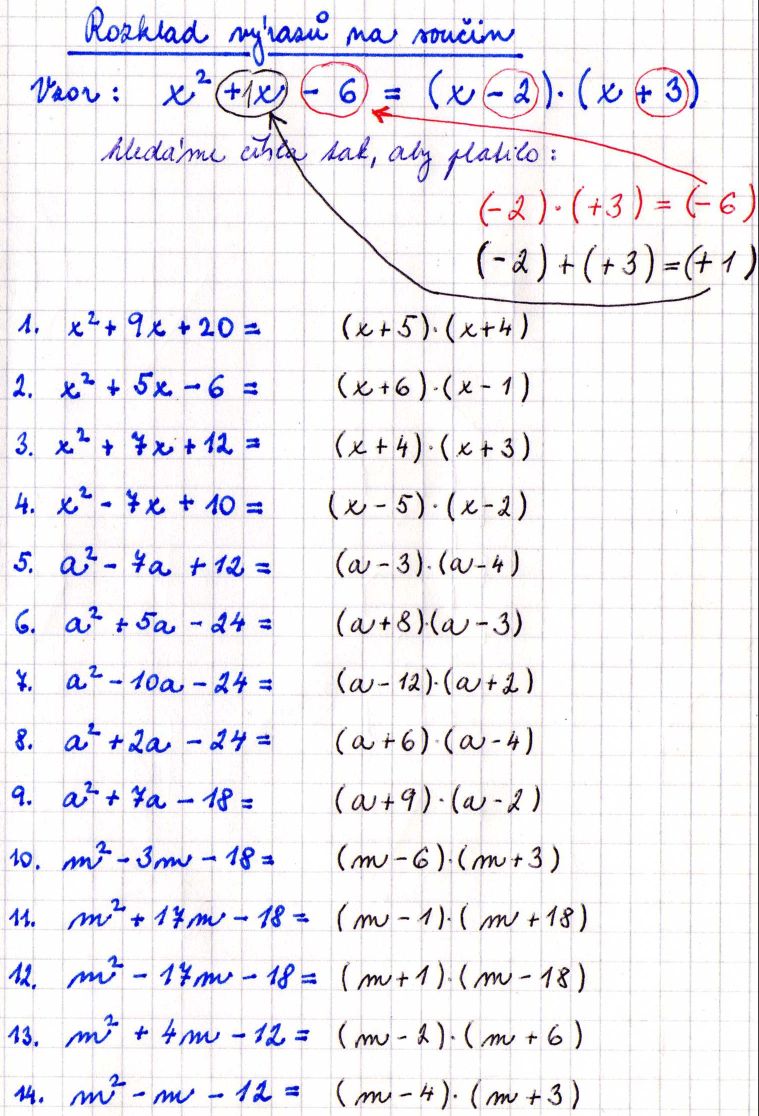 Rozklad výrazů na součin
Vzor: x² +1x - 6 = (x - 2)·(x + 3)
hledáme čísla tak, aby platilo:
(-2)·(+3) = (-6)
(-2) + (+3) = (+1)
1. x² + 9x + 20 = (x+5)·(x+4)
2. x² + 5x - 6 = (x+6)·(x-1)
3. x² + 7x + 12 = (x+4)·(x+3)
4. x² - 7x + 10 = (x-5)·(x-2)
5. a² - 7a + 12 = (a-3)·(a-4)
6. a² + 5a - 24 = (a+8)·(a-3)
7. a² - 10a - 24 = (a-12)·(a+2)
8. a² + 2a - 24 = (a+6)·(a-4)
9. a² + 7a - 18 = (a+9)·(a-2)
10. m² - 3m - 18 = (m-6)·(m+3)
11. m² + 17m - 18 = (m-1)·(m+18)
12. m² - 17m - 18 = (m+1)·(m-18)
13. m² + 4m - 12 = (m-2)·(m+6)
14. m² - m - 12 = (m-4)·(m+3)